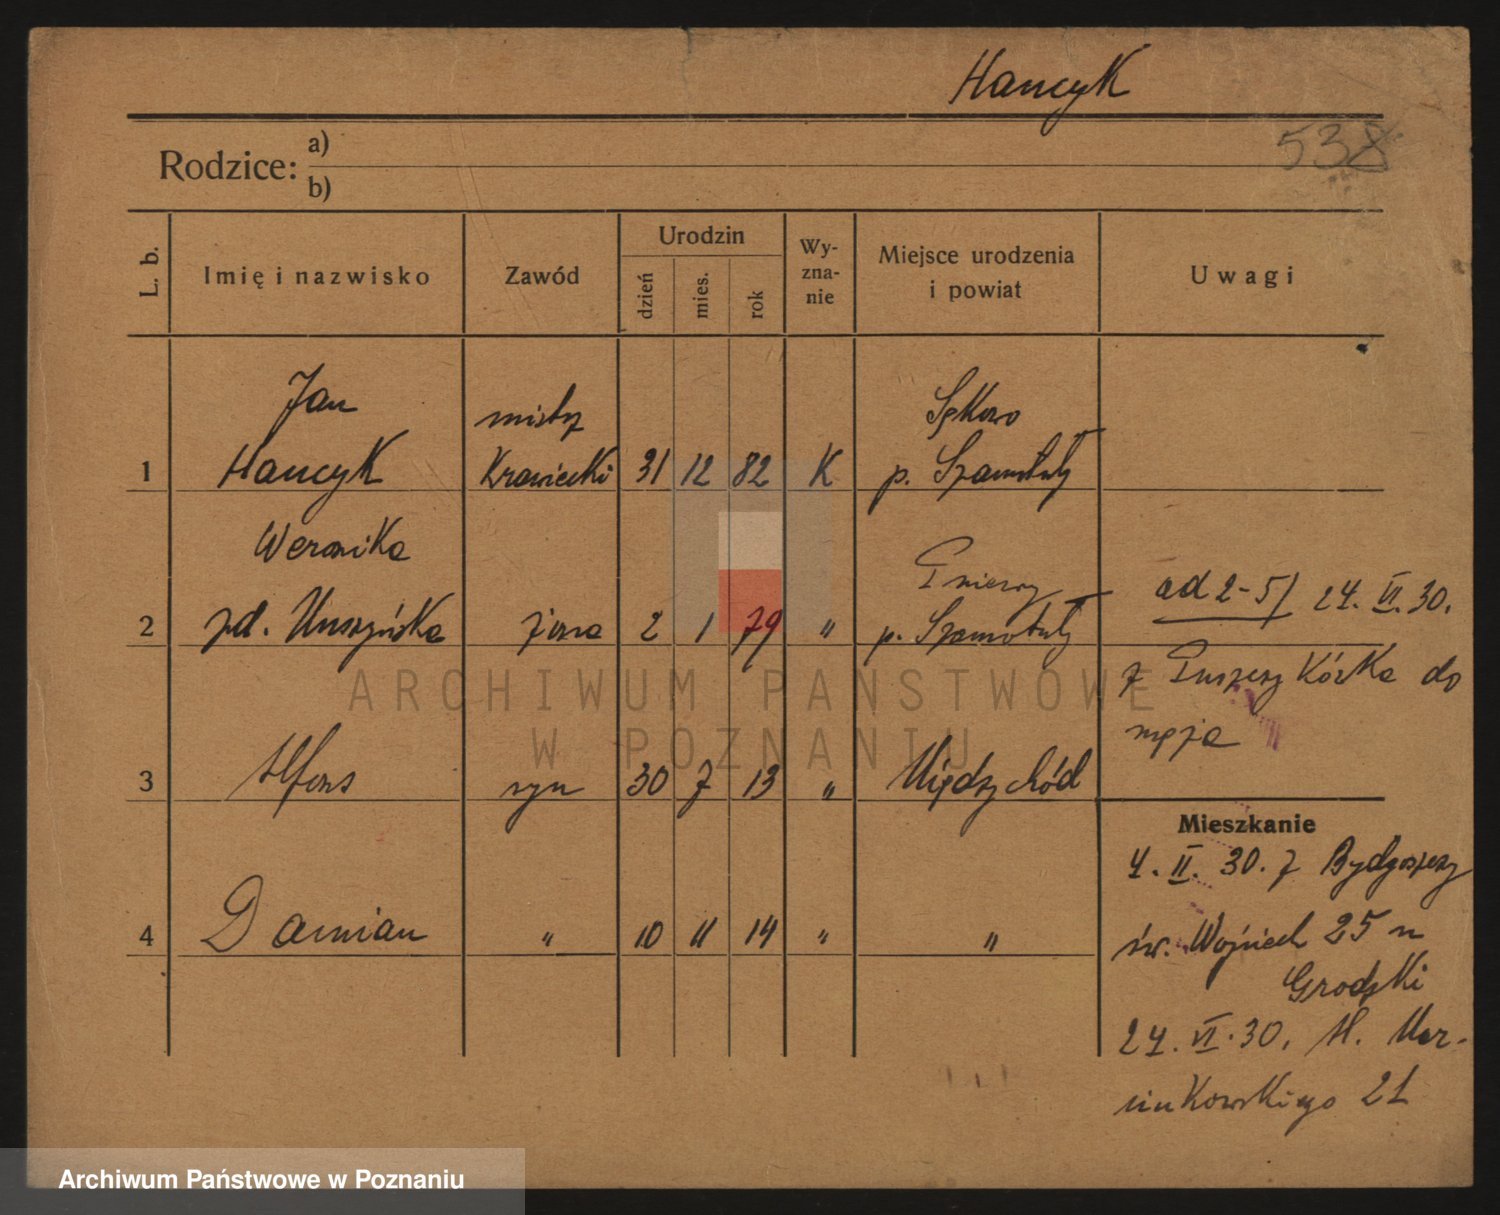 Hancyk
538
Rodzice: a)
b)
L. b.
Imię i nazwisko
Zawód
Urodzin
dzień
mies.
rok
Wy-
zna-
nie
Miejsce urodzenia
i powiat
Uwagi
Jan
mistrz
Sękowo
1 Hancyk Krawiecki 31 12 82 K p. Szamotuły
Weronika
2 zd. żona 2 1 79 " p. Szamotuły
ad 2-5/ 24. VI. 30.
z Puszczykówka do
męża
3 Alfons syn 30 7 13 " Międzychód
Mieszkanie
4. II. 30. z Bydgoszczy
4 Damian " 10 11 14 " "
św. Wojciech 25 u
Grodzki
24. VI. 30. Al. Mar-
cinkowskiego 21
ARCHIWUM PAŃSTWOWE
W POZNANIU
Archiwum Państwowe w Poznaniu